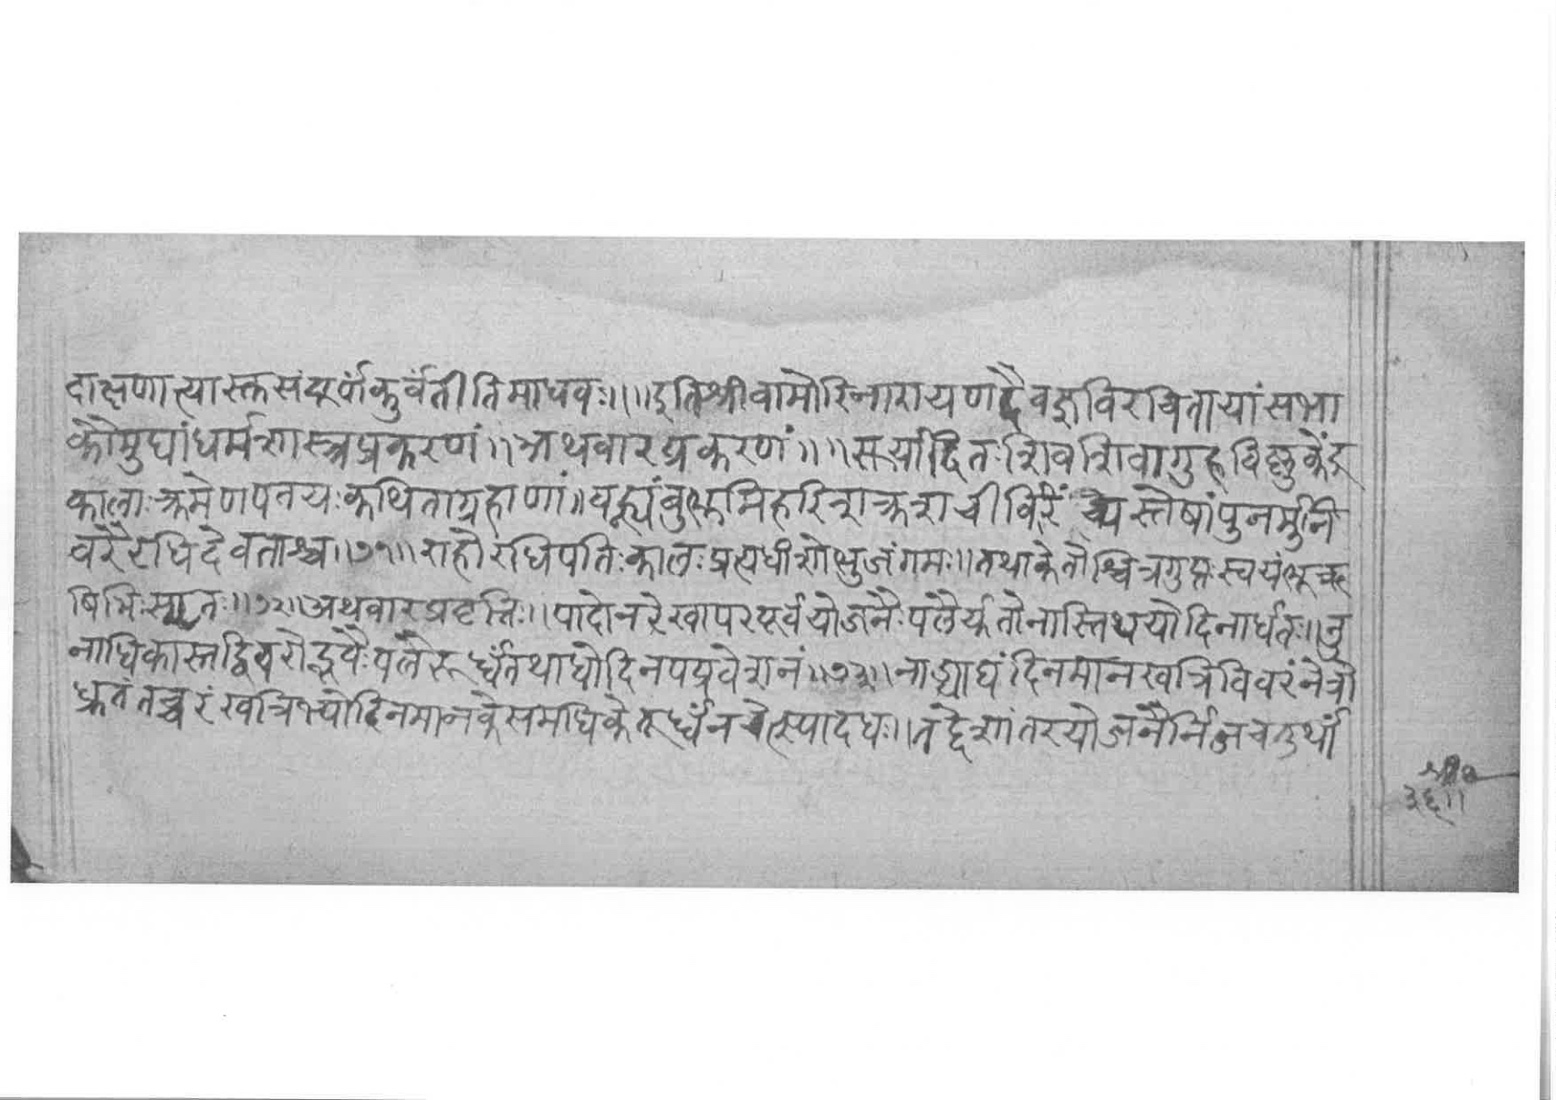 दाक्षणात्यास्तसंपूर्णकुर्वंतीतिमाधवः॥।॥इतिश्रीवामोरिनारायणदैवज्ञविरचितायांसभा
कौमुद्यांधर्मशास्त्रप्रकरणं॥अथवारप्रकरणं॥॥सूर्यादितःशिवशिवागुहविष्णुकेंद्र
कालाःक्रमेणपतयःकथिताग्रहाणां॥वह्न्यंबुभूमिहरिशक्रशचीविरिंच्यस्तेषांपुनर्मुनि
वरैरधिदेवताश्च॥७१॥राहौरधिपतिःकालःप्रत्यधीशोभुजंगमः॥तथाकेतोश्चित्रगुप्तःस्वयंभूऋ
षिभिःस्मृतः॥७२॥अथवारप्रवृत्तिः॥पादोनरेखापरपूर्वयोजनैःपलैर्युतोनास्तिथयोदिनार्धतः॥नु
नाधिकास्तद्विवरोद्भवैःपलैरूर्ध्वंतथाधोदिनपप्रवेशनं॥७३॥नाड्याद्यंदिनमानखत्रिविवरंनेत्रो
ध्रुतंतच्चरंखत्रिभ्योदिनमानकेसमधिकेतूर्ध्वंनचेत्स्यादधः॥तद्देशांतरयोजनैर्निजचतुर्थां
श्री॰
३६॥